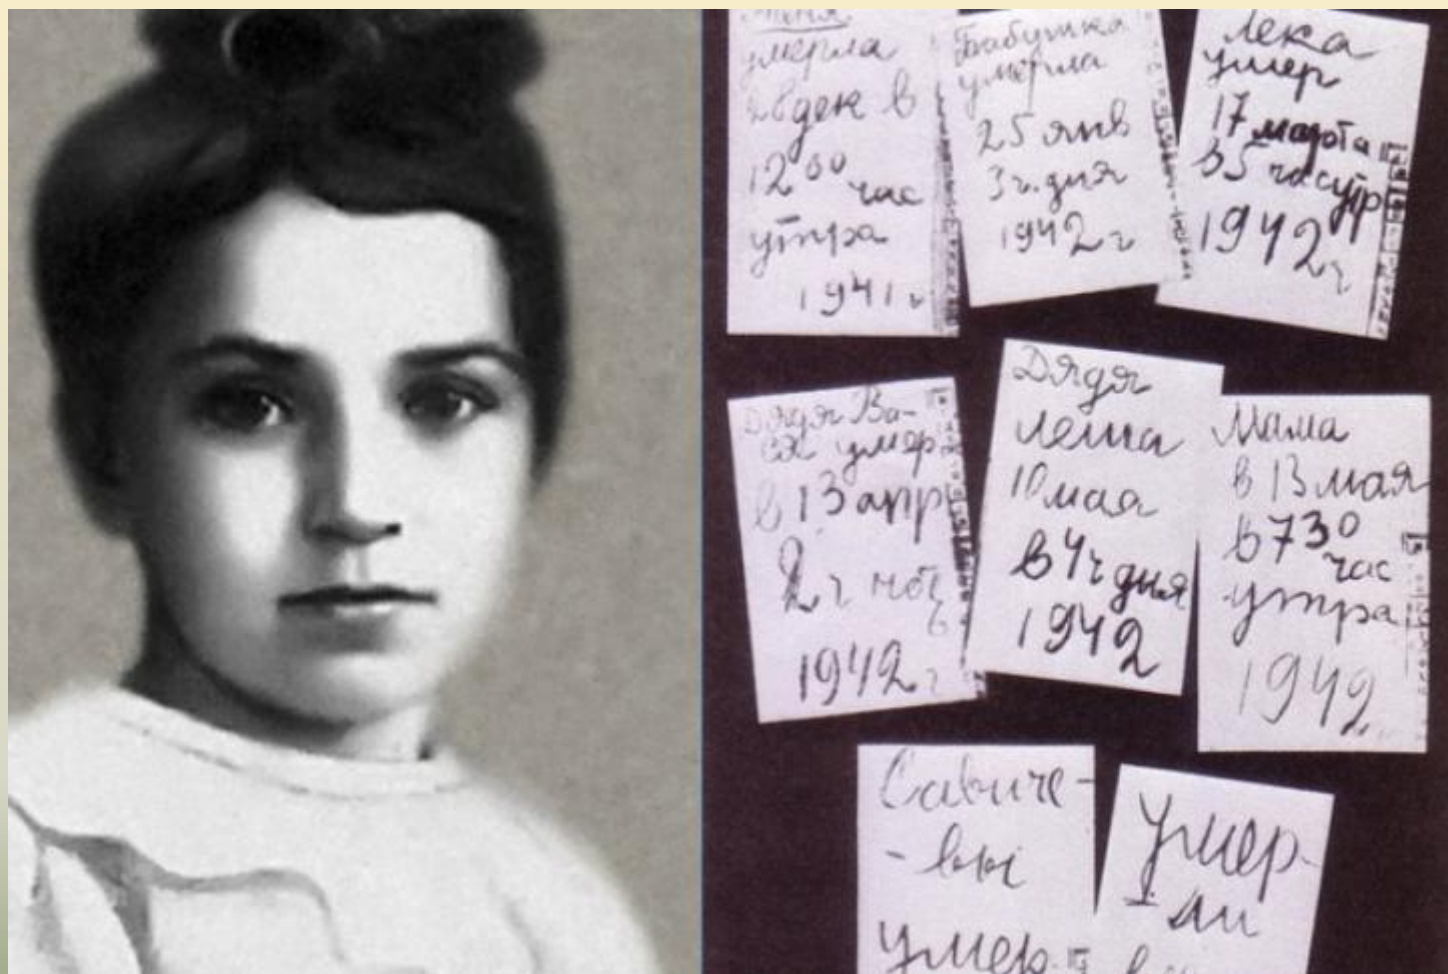 Женя
умерла
28 дек в
12 00 час
утра
1941 г
Бабушка
умерла
25 янв
3 ч. дня
1942 г
Лека
умер
17 марта
в 5 час утр
1942 г
Дядя Ва-
ся умер
в 13 апр
2 ч ноч
1942 г
Дядя
Леша
10 мая
в 4 ч дня
1942
Мама
в 13 мая
в 7 30
час
утра
1942
Савиче-
-вы
умер
Умер-
ли